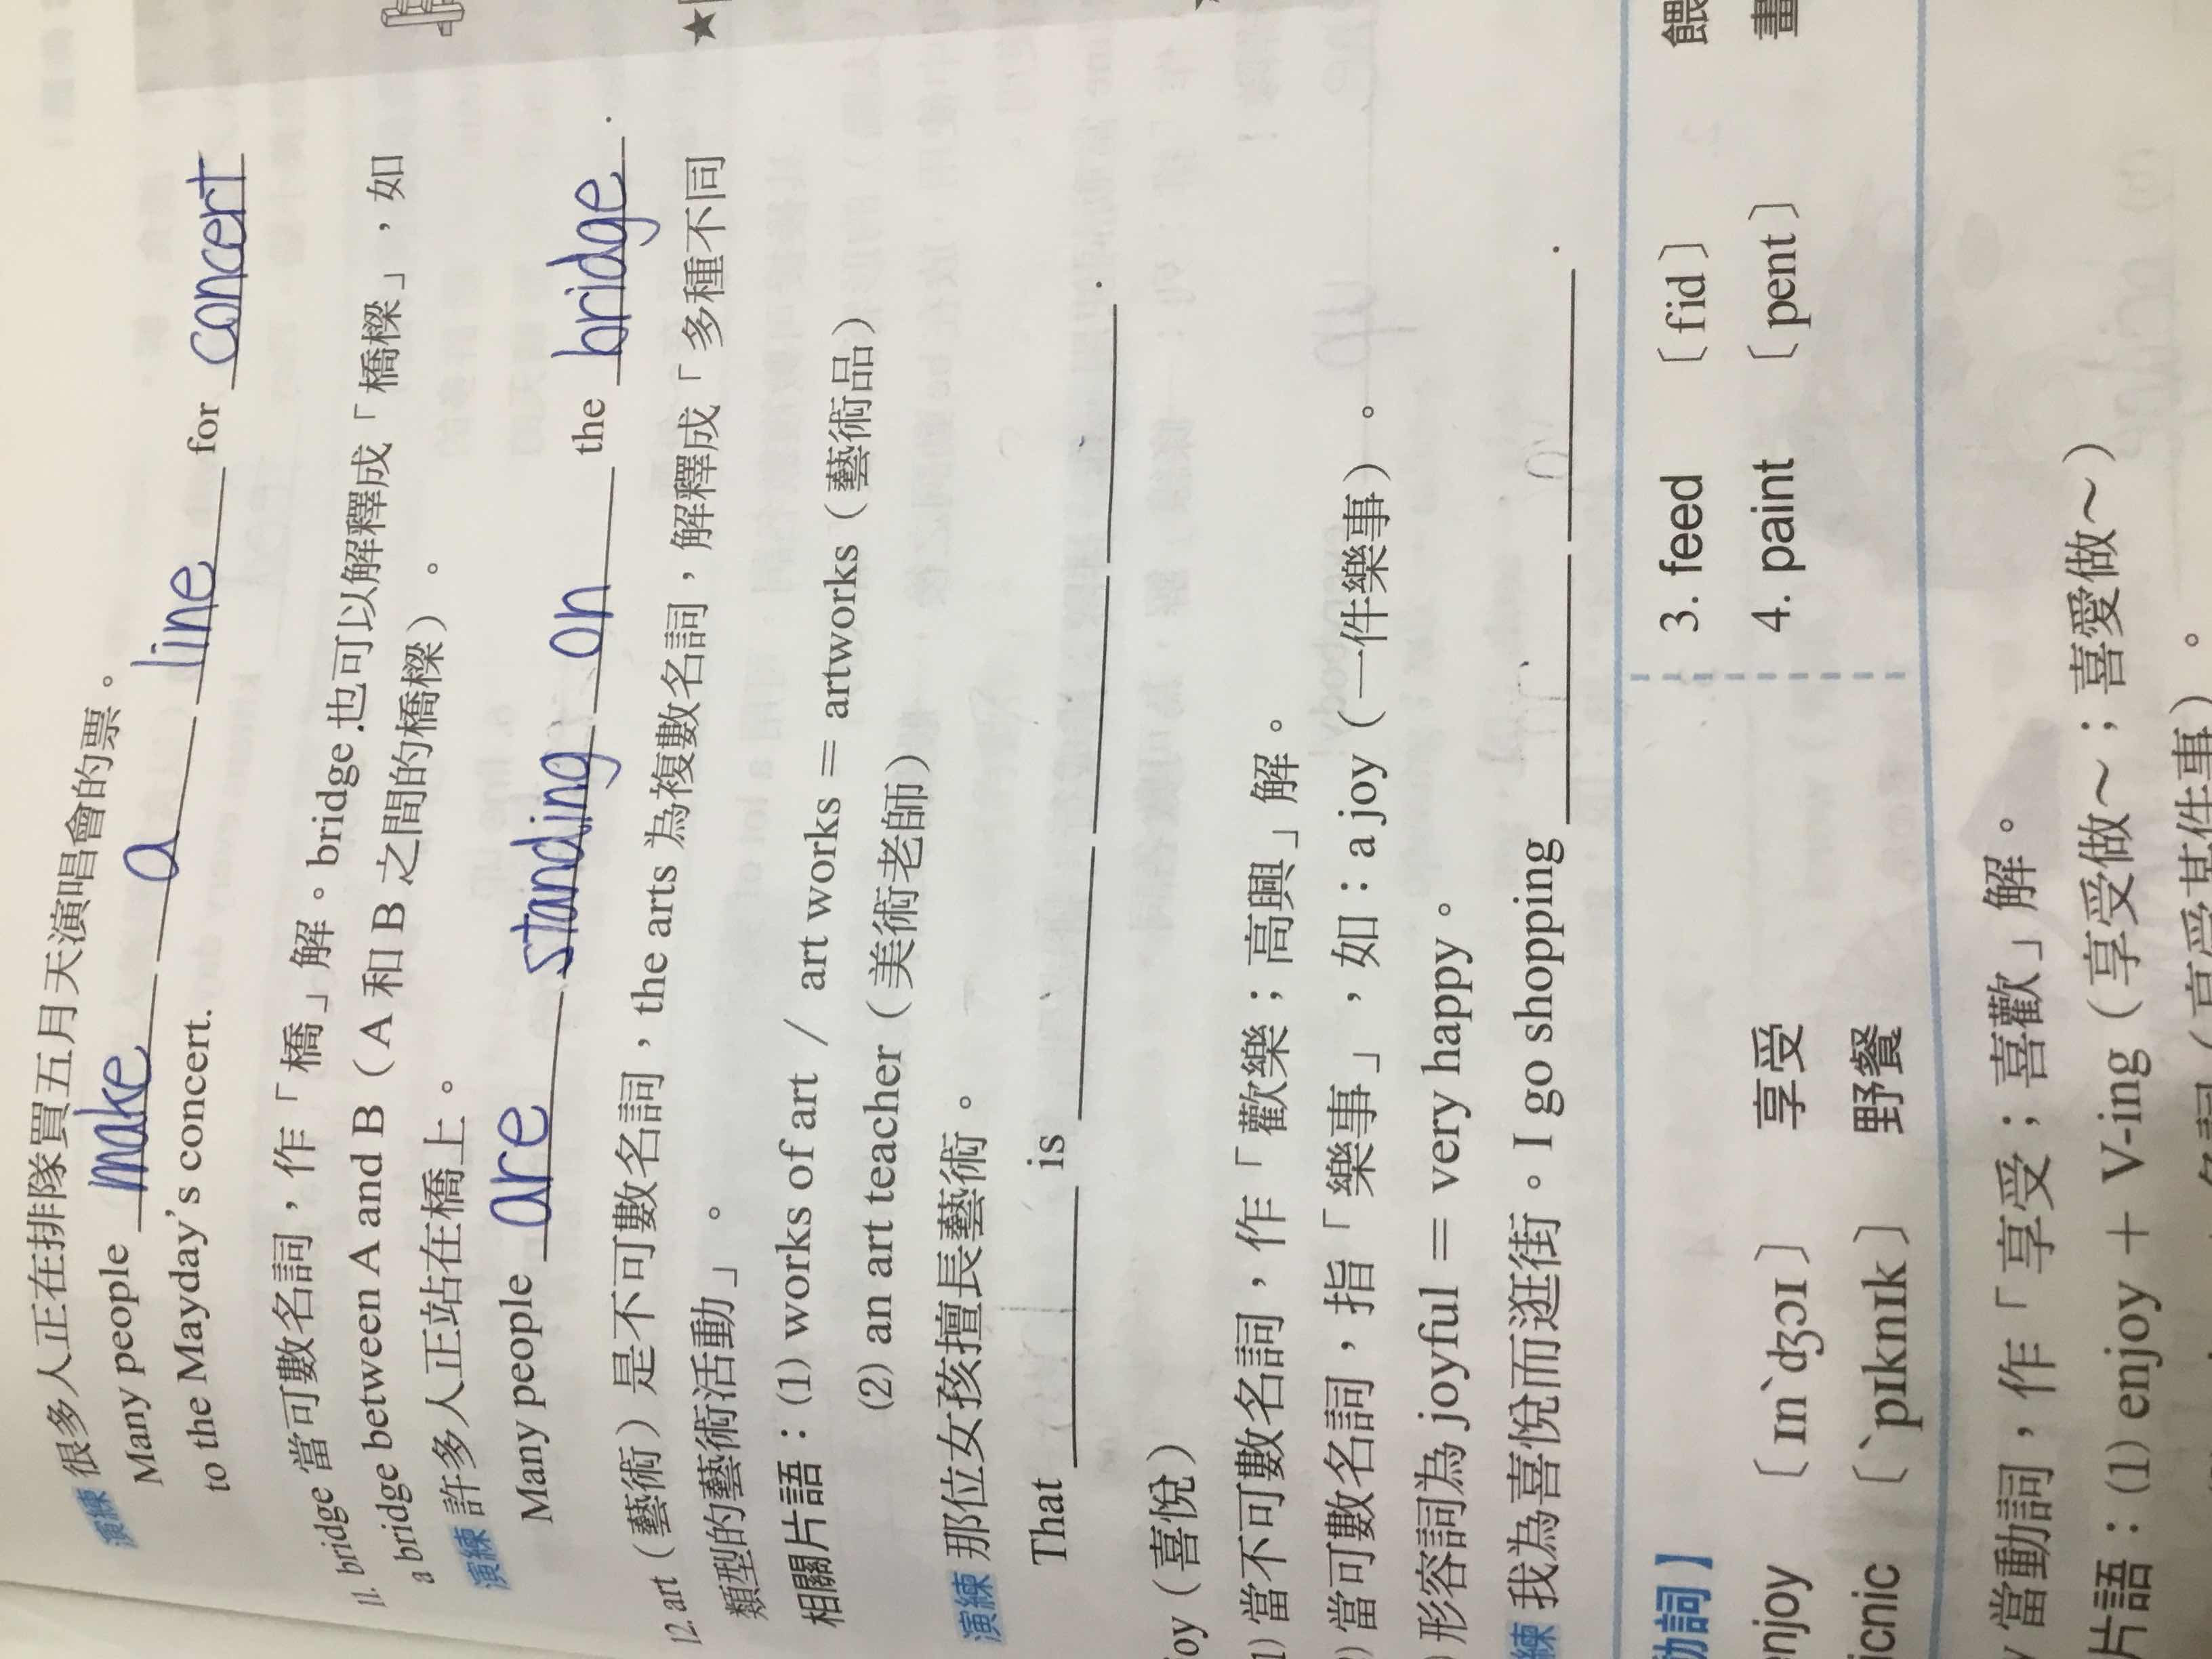 演練 很多人正在排隊買五月天演唱會的票。
Many people make a line for concert
to the Mayday's concert.
11. bridge 當可數名詞，作「橋」解。bridge 也可以解釋成「橋樑」，如
a bridge between A and B（A 和 B 之間的橋樑）。
演練 許多人正站在橋上。
Many people are standing on the bridge.
12. art（藝術）是不可數名詞，the arts 為複數名詞，解釋成「多種不同
類型的藝術活動」。
相關片語：(1) works of art / art works = artworks（藝術品）
(2) an art teacher（美術老師）
演練 那位女孩擅長藝術。
That ______ is ______ ______ ______.
oy（喜悅）
1) 當不可數名詞，作「歡樂；高興」解。
) 當可數名詞，指「樂事」，如：a joy（一件樂事）。
) 形容詞為 joyful = very happy。
練 我為喜悅而逛街。I go shopping ______ ______.
動詞】
enjoy 〔ɪnˋdʒɔɪ〕 享受 3. feed 〔fid〕 餵
icnic 〔ˋpɪknɪk〕 野餐 4. paint 〔pent〕 畫
y 當動詞，作「享受；喜歡」解。
片語：(1) enjoy + V-ing（享受做～；喜愛做～）
（享受某件事）。